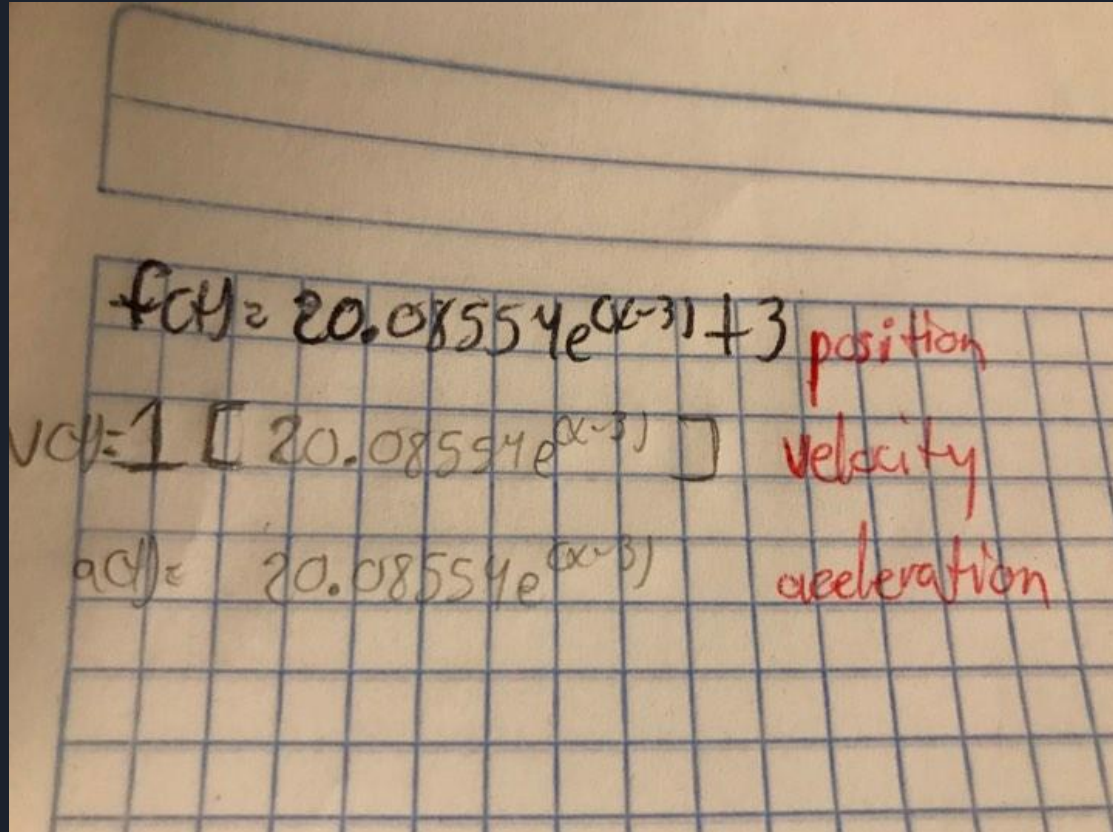 f(t)= 20.08554e^(x-3)+3 position
v(t)=1 [ 20.08554e^(x-3) ] velocity
a(t)= 20.08554e^(x-3) aceleration